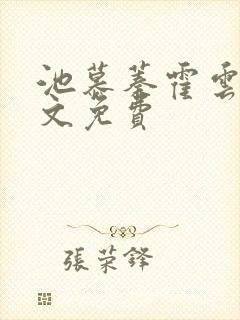 池慕蓁霍雲
文免費
張荣鋒